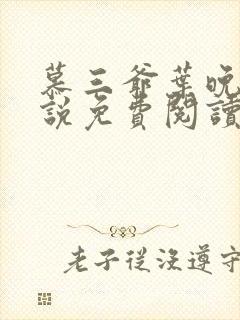 慕三爺葉晚
說免費閱讀
老子從沒遵守